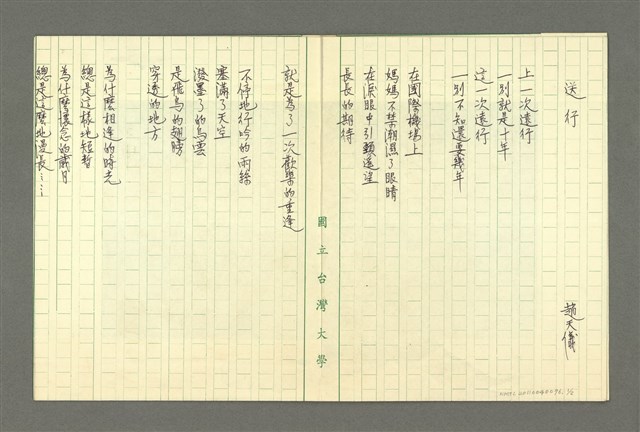 送行
趙天儀
上一次遠行
一別就是十年
這一次遠行
一別不知還要幾年
在國際機場上
媽媽不禁潮濕了眼睛
在淚眼中引頸遙望
長長的期待
就是為了一次歡樂的重逢
不停地行吟的雨絲
塞滿了天空
潑墨了的烏雲
是飛鳥的翅膀
穿透的地方
為什麼相逢的時光
總是這樣地短暫
為什麼懷念的歲月
總是這麼地漫長……
國立台灣大學